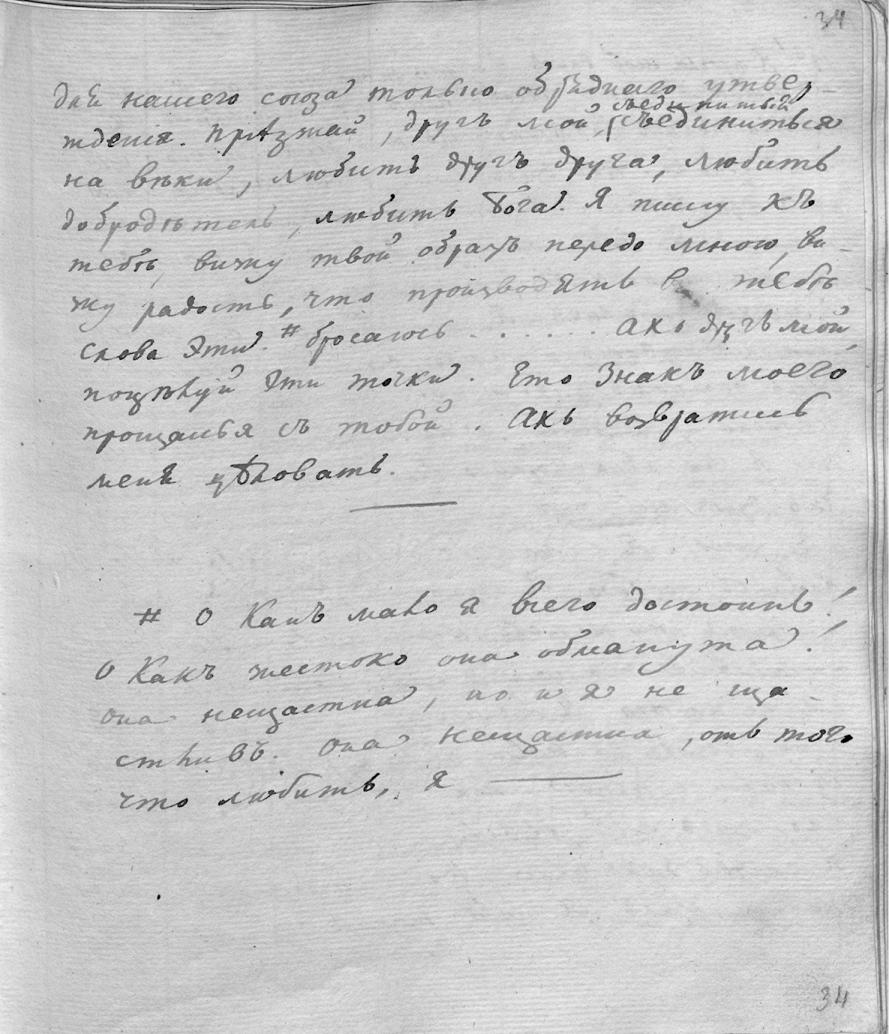 34
для нашего союза только обряднаго утвер-
жденія. Пріѣзжай, другъ мой, съединиться
на вѣки, любить другъ друга, любить
добродѣтель, любить Бога. Я пишу къ
тебѣ, вижу твой образъ передо мною, ви-
жу радость, что произведятъ въ тебѣ
слова эти. # бросаюсь . . . . . . Ахъ другъ мой,
поцѣлуй эти точки. Ето знакъ моего
прощанья съ тобой. Ахъ возвратись
меня цѣловать.
# О Какъ мало я всего достоинъ!
О Какъ жестоко она обманута!
она нещастна, но и я не ща-
стливъ. Она нещастна, отъ того
что любитъ, я
34